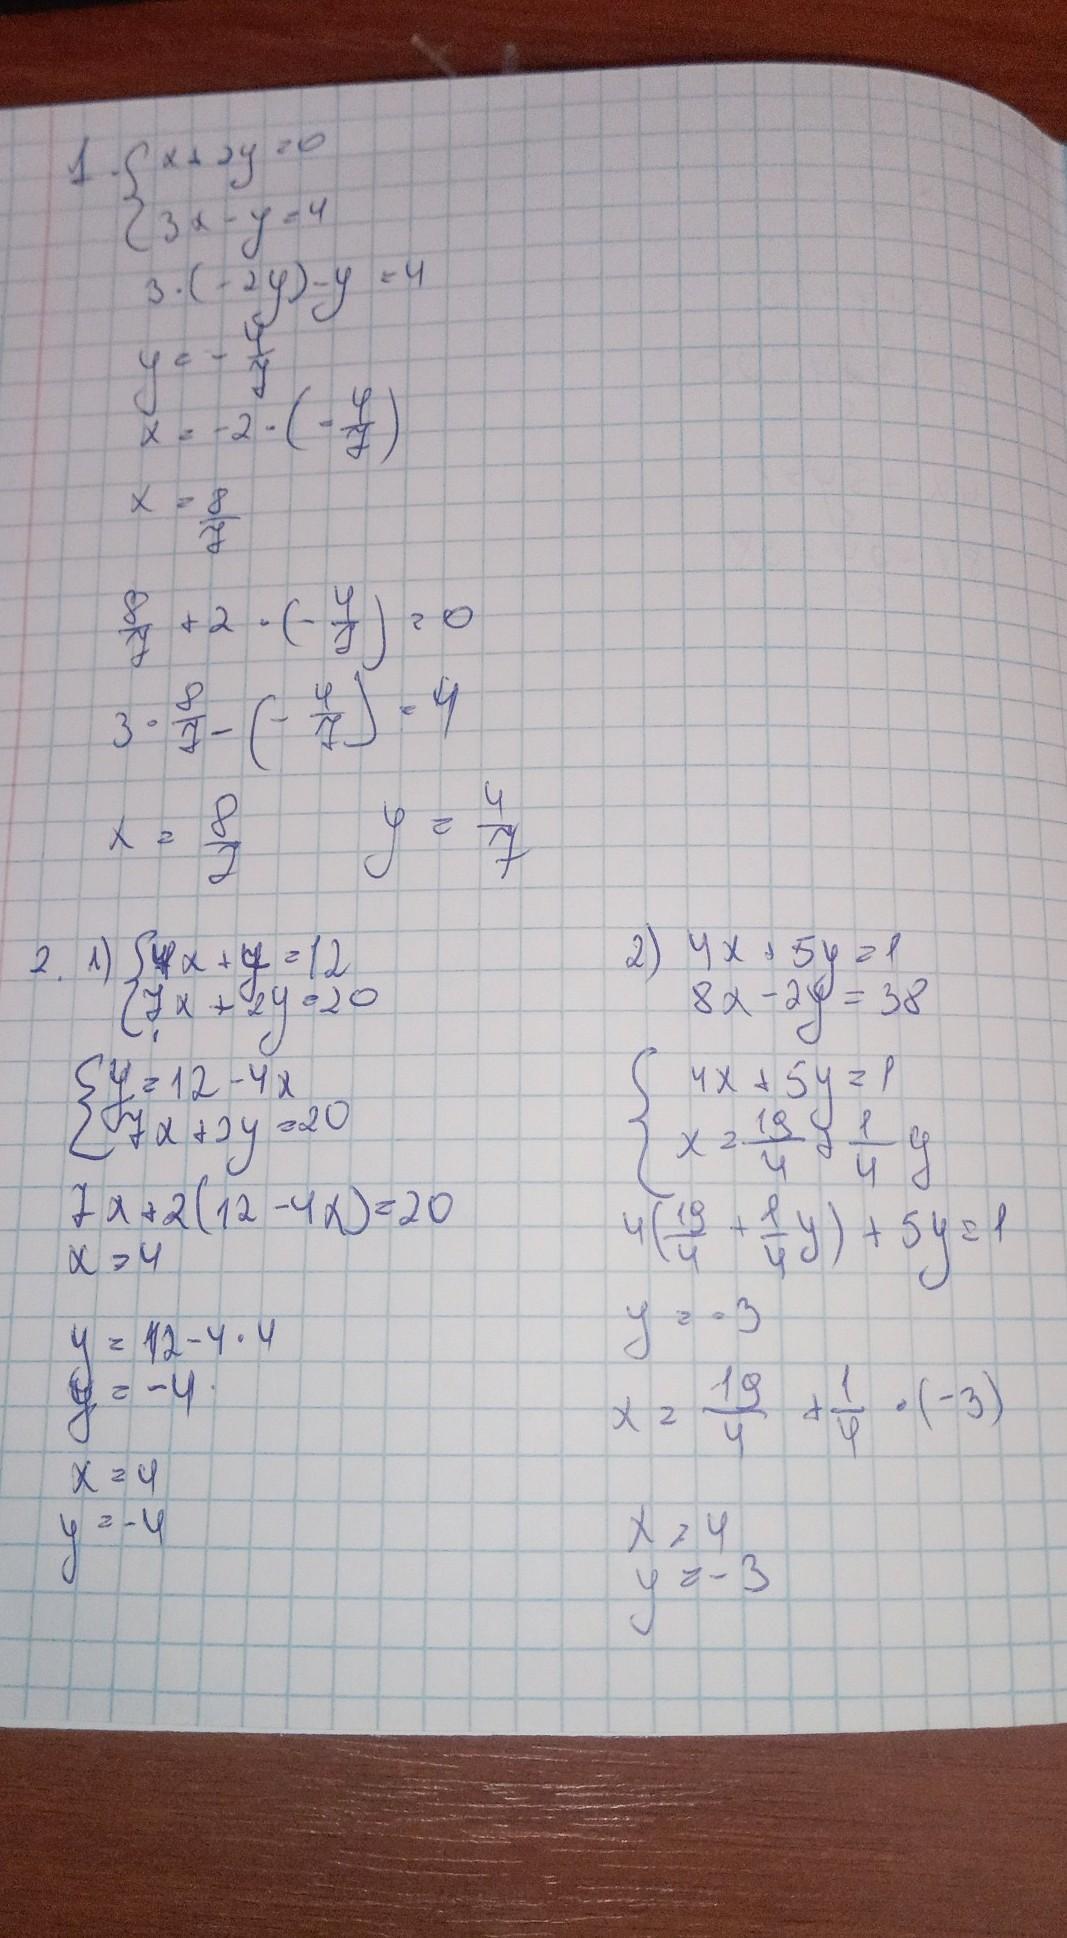 1. { x + 2y = 0
3x - y = 4
3 · (-2y) - y = 4
y = - 4/7
x = -2 · (- 4/7)
x = 8/7
8/7 + 2 · (- 4/7) = 0
3 · 8/7 - (- 4/7) = 4
x = 8/7 y = 4/7
2. 1) { 4x + y = 12
7x + 2y = 20
{ y = 12 - 4x
7x + 2y = 20
7x + 2(12 - 4x) = 20
x = 4
y = 12 - 4 · 4
y = -4
x = 4
y = -4
2) 4x + 5y = 1
8x - 2y = 38
{ 4x + 5y = 1
x = 19/4 + 1/4 y
4(19/4 + 1/4 y) + 5y = 1
y = -3
x = 19/4 + 1/4 · (-3)
x = 4
y = -3